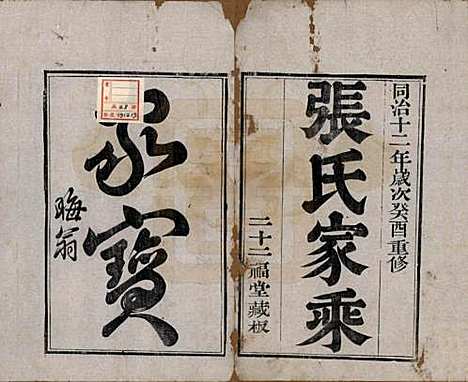 同治十二年歲次癸酉重修
張氏家乘
二十二福堂藏板
家寶
晦翁